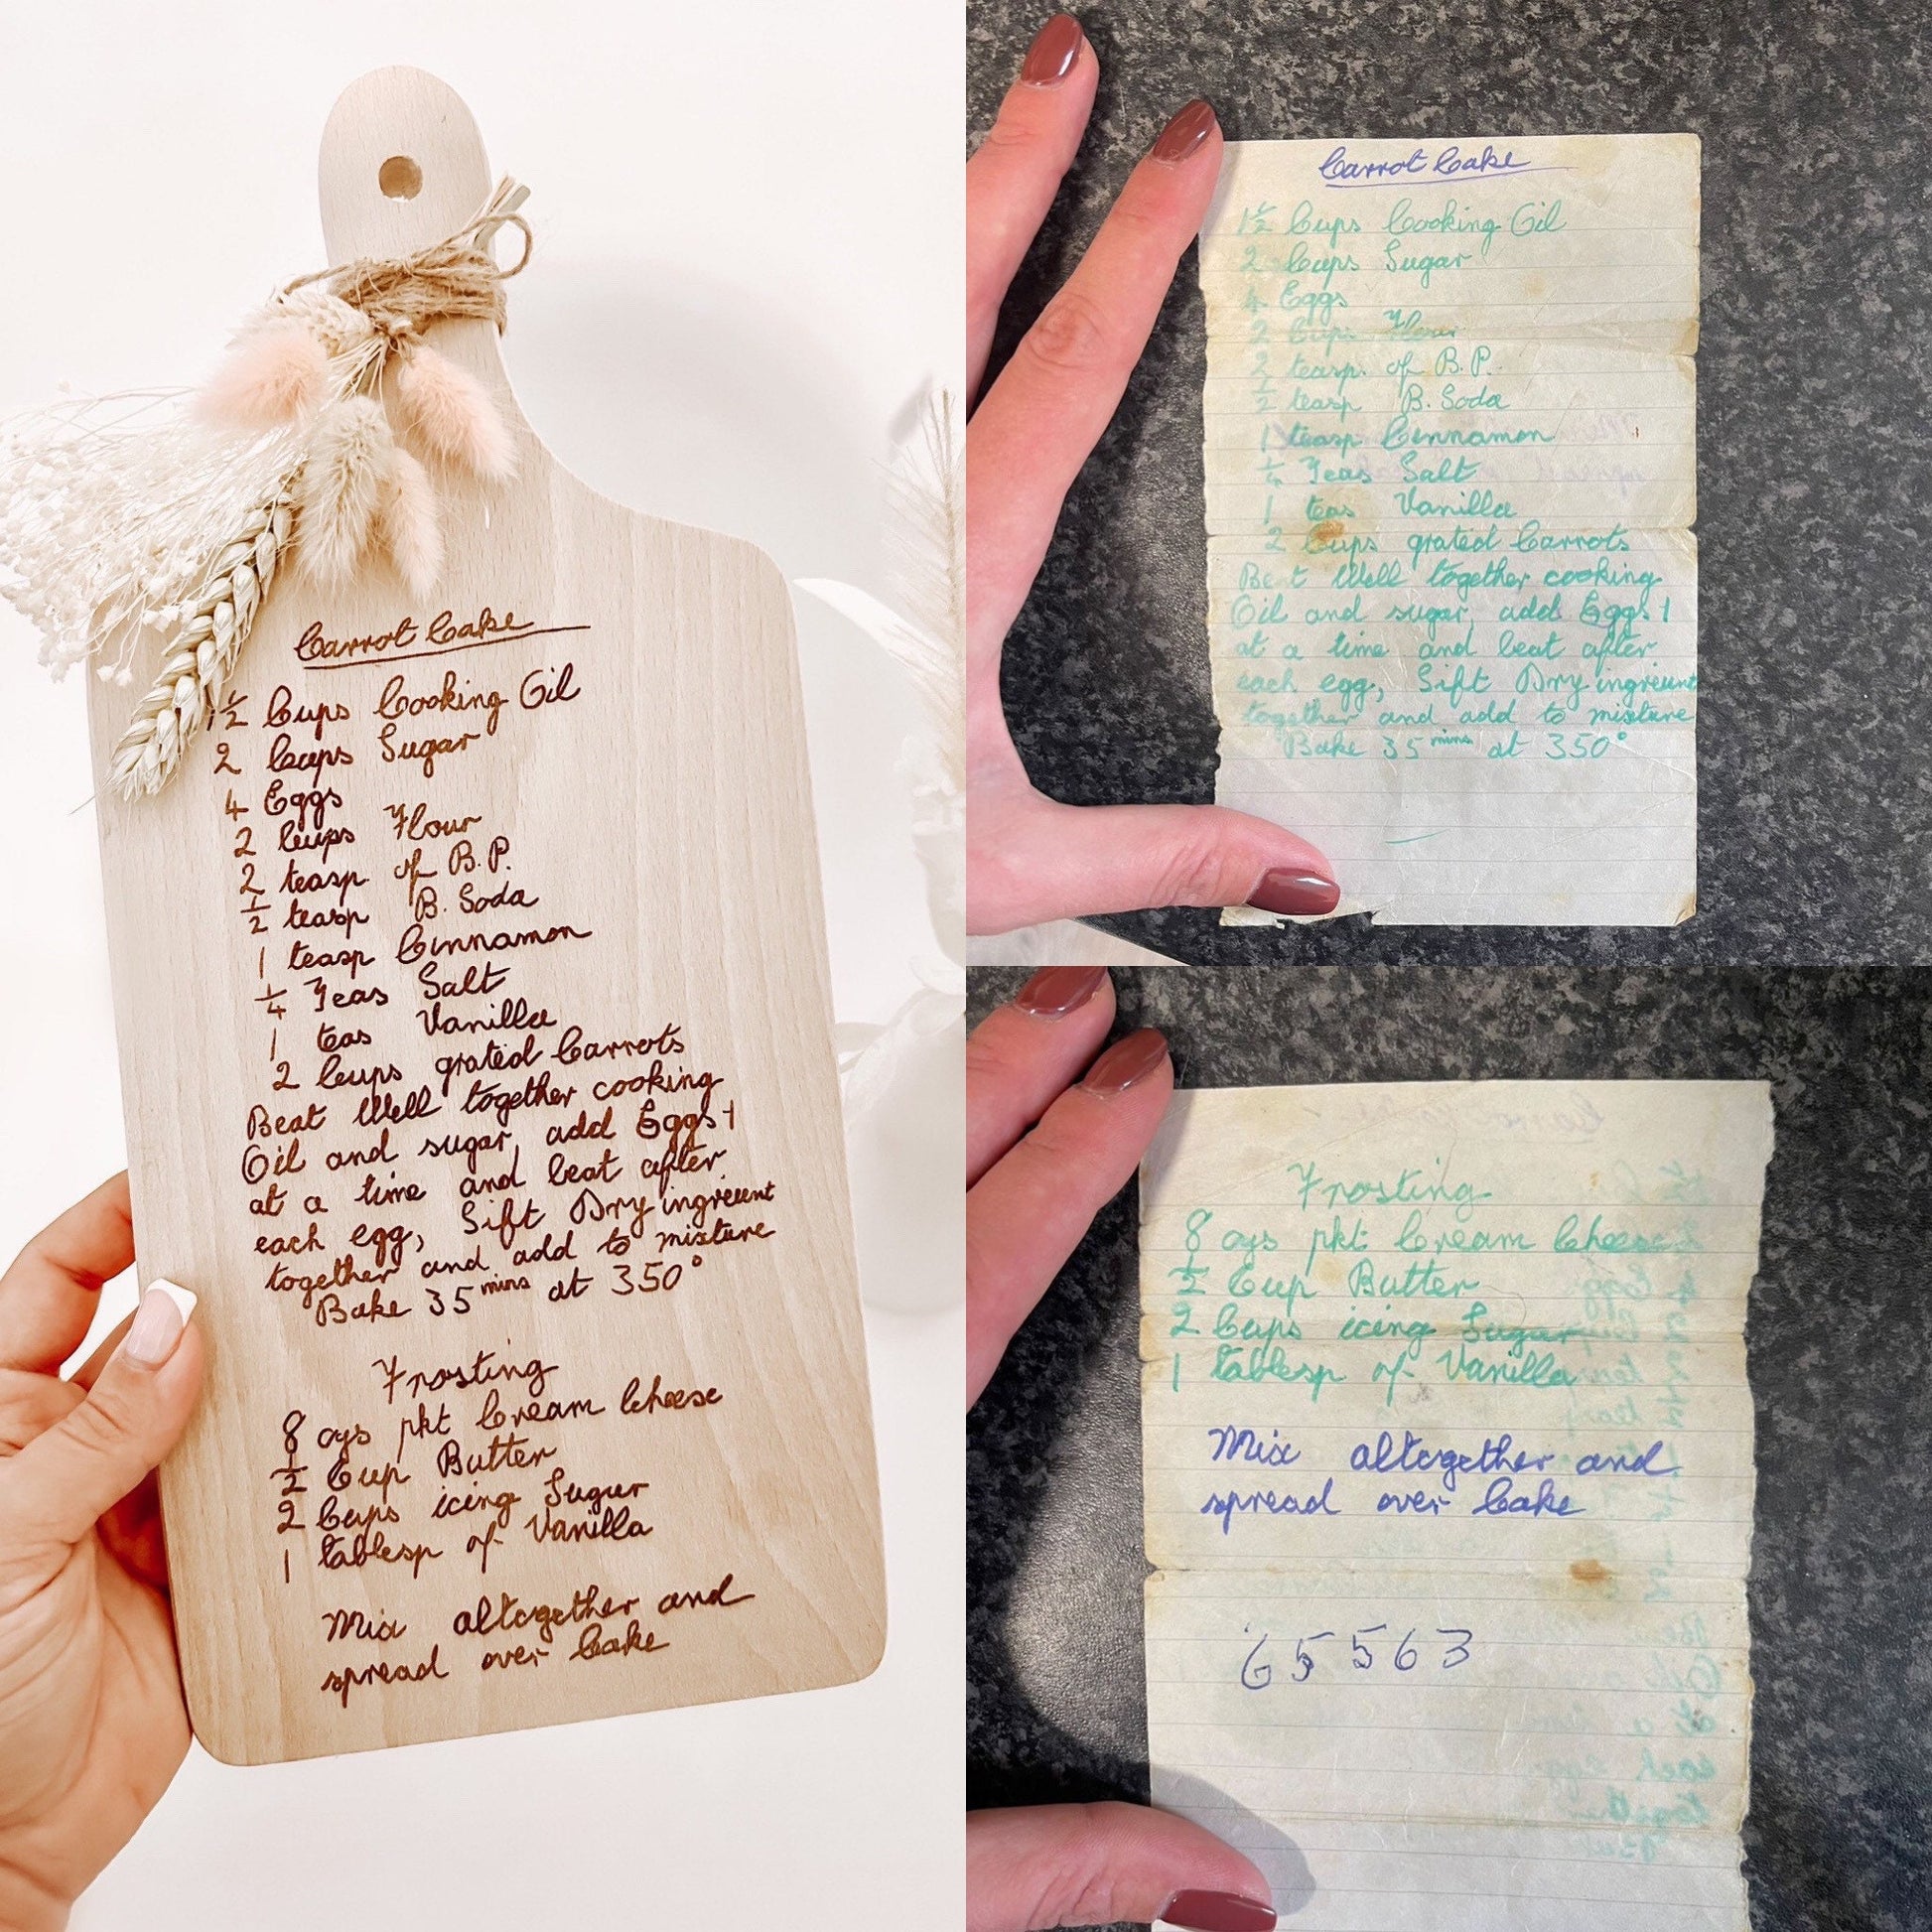 Carrot Cake
1½ Cups Cooking Oil
2 Cups Sugar
4 Eggs
2 Cups Flour
2 teasp. of B.P.
½ teasp B. Soda
1 teasp Cinnamon
¼ Teas Salt
1 teas Vanilla
2 Cups grated Carrots
Beat Well together cooking
Oil and sugar, add Eggs 1
at a time and beat after
each egg, Sift Dry ingreient
together and add to mixture
Bake 35 mins at 350°
Frosting
8 ozs pkt Cream Cheese
½ Cup Butter
2 Cups icing Sugar
1 tablesp of Vanilla
Mix altogether and
spread over Cake
Carrot Cake
1½ Cups Cooking Oil
2 Cups Sugar
4 Eggs
2 Cups Flour
2 teasp. of B.P.
½ teasp B. Soda
1 teasp Cinnamon
¼ Teas Salt
1 teas Vanilla
2 Cups grated Carrots
Beat Well together cooking
Oil and sugar, add Eggs 1
at a time and beat after
each egg, Sift Dry ingreient
together and add to mixture
Bake 35 mins at 350°
Frosting
8 ozs pkt Cream Cheese
½ Cup Butter
2 Cups icing Sugar
1 tablesp of Vanilla
Mix altogether and
spread over Cake
65563